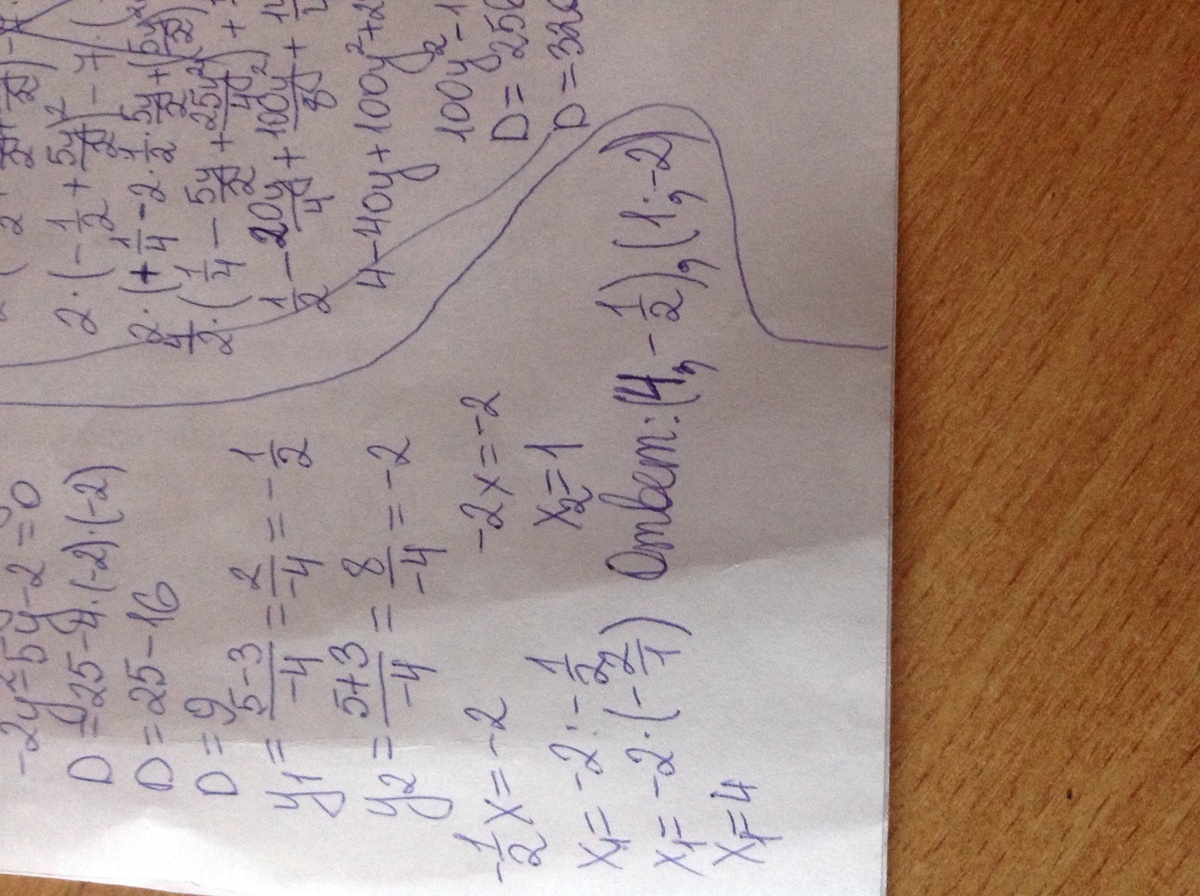 -2y²-5y-2=0
D=25-4·(-2)·(-2)
D=25-16
D=9
y₁=\frac{5-3}{-4}=\frac{2}{-4}=-\frac{1}{2}
y₂=\frac{5+3}{-4}=\frac{8}{-4}=-2
-\frac{1}{2}x=-2
x₁=-2:-\frac{1}{2}
x₁=-2·(-\frac{2}{1})
x₁=4
-2x=-2
x₂=1
Ответ:(4;-\frac{1}{2}),(1;-2)
2·(-\frac{1}{2}+\frac{5y}{2})²-7·
2·(+\frac{1}{4}-2·\frac{1}{2}·\frac{5y}{2}+(\frac{5y}{2})²)
2·(\frac{1}{4}-\frac{5y}{2}+\frac{25y²}{4})+
\frac{1}{2}-\frac{20y}{4}+\frac{100y²}{8}+
4-40y+100y²+2
100y²-1
D=256
D=320